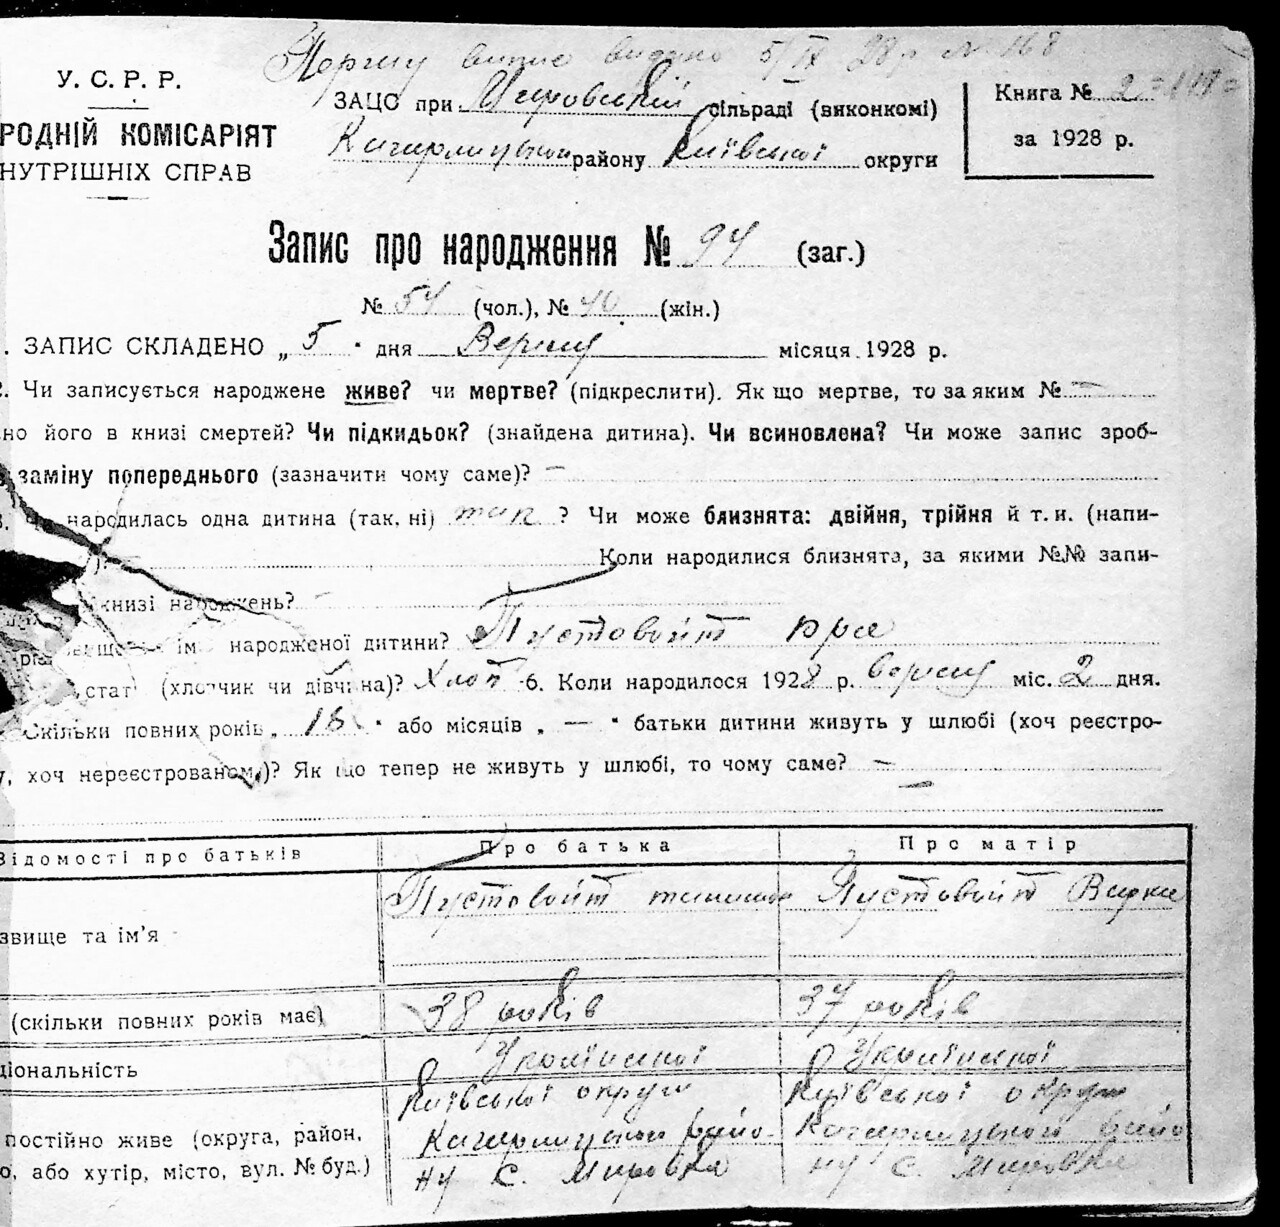 Першу випис видано 5/IX 28 р № 168
У. С. Р. Р.
ЗАЦС при Мировській сільраді (виконкомі)
Книга № 2
РОДНІЙ КОМІСАРІЯТ
Кагарлицького району Київської округи
за 1928 р.
НУТРІШНІХ СПРАВ
Запис про народження № 94 (заг.)
№ 54 (чол.), № 40 (жін.)
. ЗАПИС СКЛАДЕНО „ 5 " дня Вересня місяця 1928 р.
2. Чи записується народжене живе? чи мертве? (підкреслити). Як що мертве, то за яким № —
но його в книзі смертей? Чи підкидьок? (знайдена дитина). Чи всиновлена? Чи може запис зроб-
заміну попереднього (зазначити чому саме)? —
народилась одна дитина (так, ні) так ? Чи може близнята: двійня, трійня й т. и. (напи-
)? Коли народилися близнята, за якими №№ запи-
книзі народжень? —
ім народженої дитини? Пустовойт
стать (хлопчик чи дівчина)? Хлоп 6. Коли народилося 1928 р. вересня міс. 2 дня.
Скільки повних років „ 18 " або місяців „ — " батьки дитини живуть у шлюбі (хоч реєстро-
у, хоч нереєстрованому)? Як що тепер не живуть у шлюбі, то чому саме? —
Відомості про батьків Про батька Про матір
Пустовойт Пустовойт
звище та ім'я
(скільки повних років має) 38 років 37 років
ціональність Української Української
Київської округи Київської округи
постійно живе (округа, район, Кагарлицького райо- Кагарлицького райо
о, або хутір, місто, вул. № буд.) ну с. Мировка ну с. Мировка